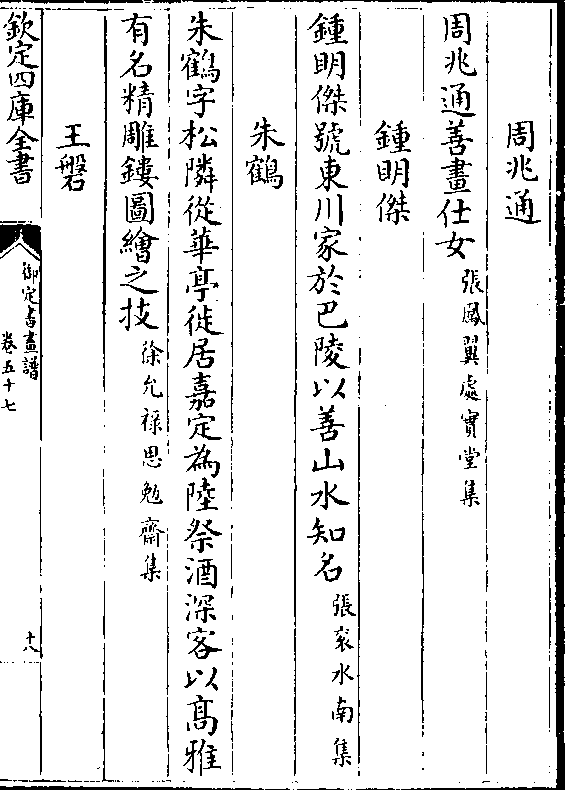 周兆通
周兆通善畫仕女張鳳翼處實堂集
鍾明傑
鍾明傑號東川家於巴陵以善山水知名張袞水南集
朱鶴
朱鶴字松隣從華亭徙居嘉定為陸祭酒深客以髙雅
有名精雕鏤圖繪之技徐允禄思勉齋集
王磐
欽定四庫全書
御定書畫譜
卷五十七
十八